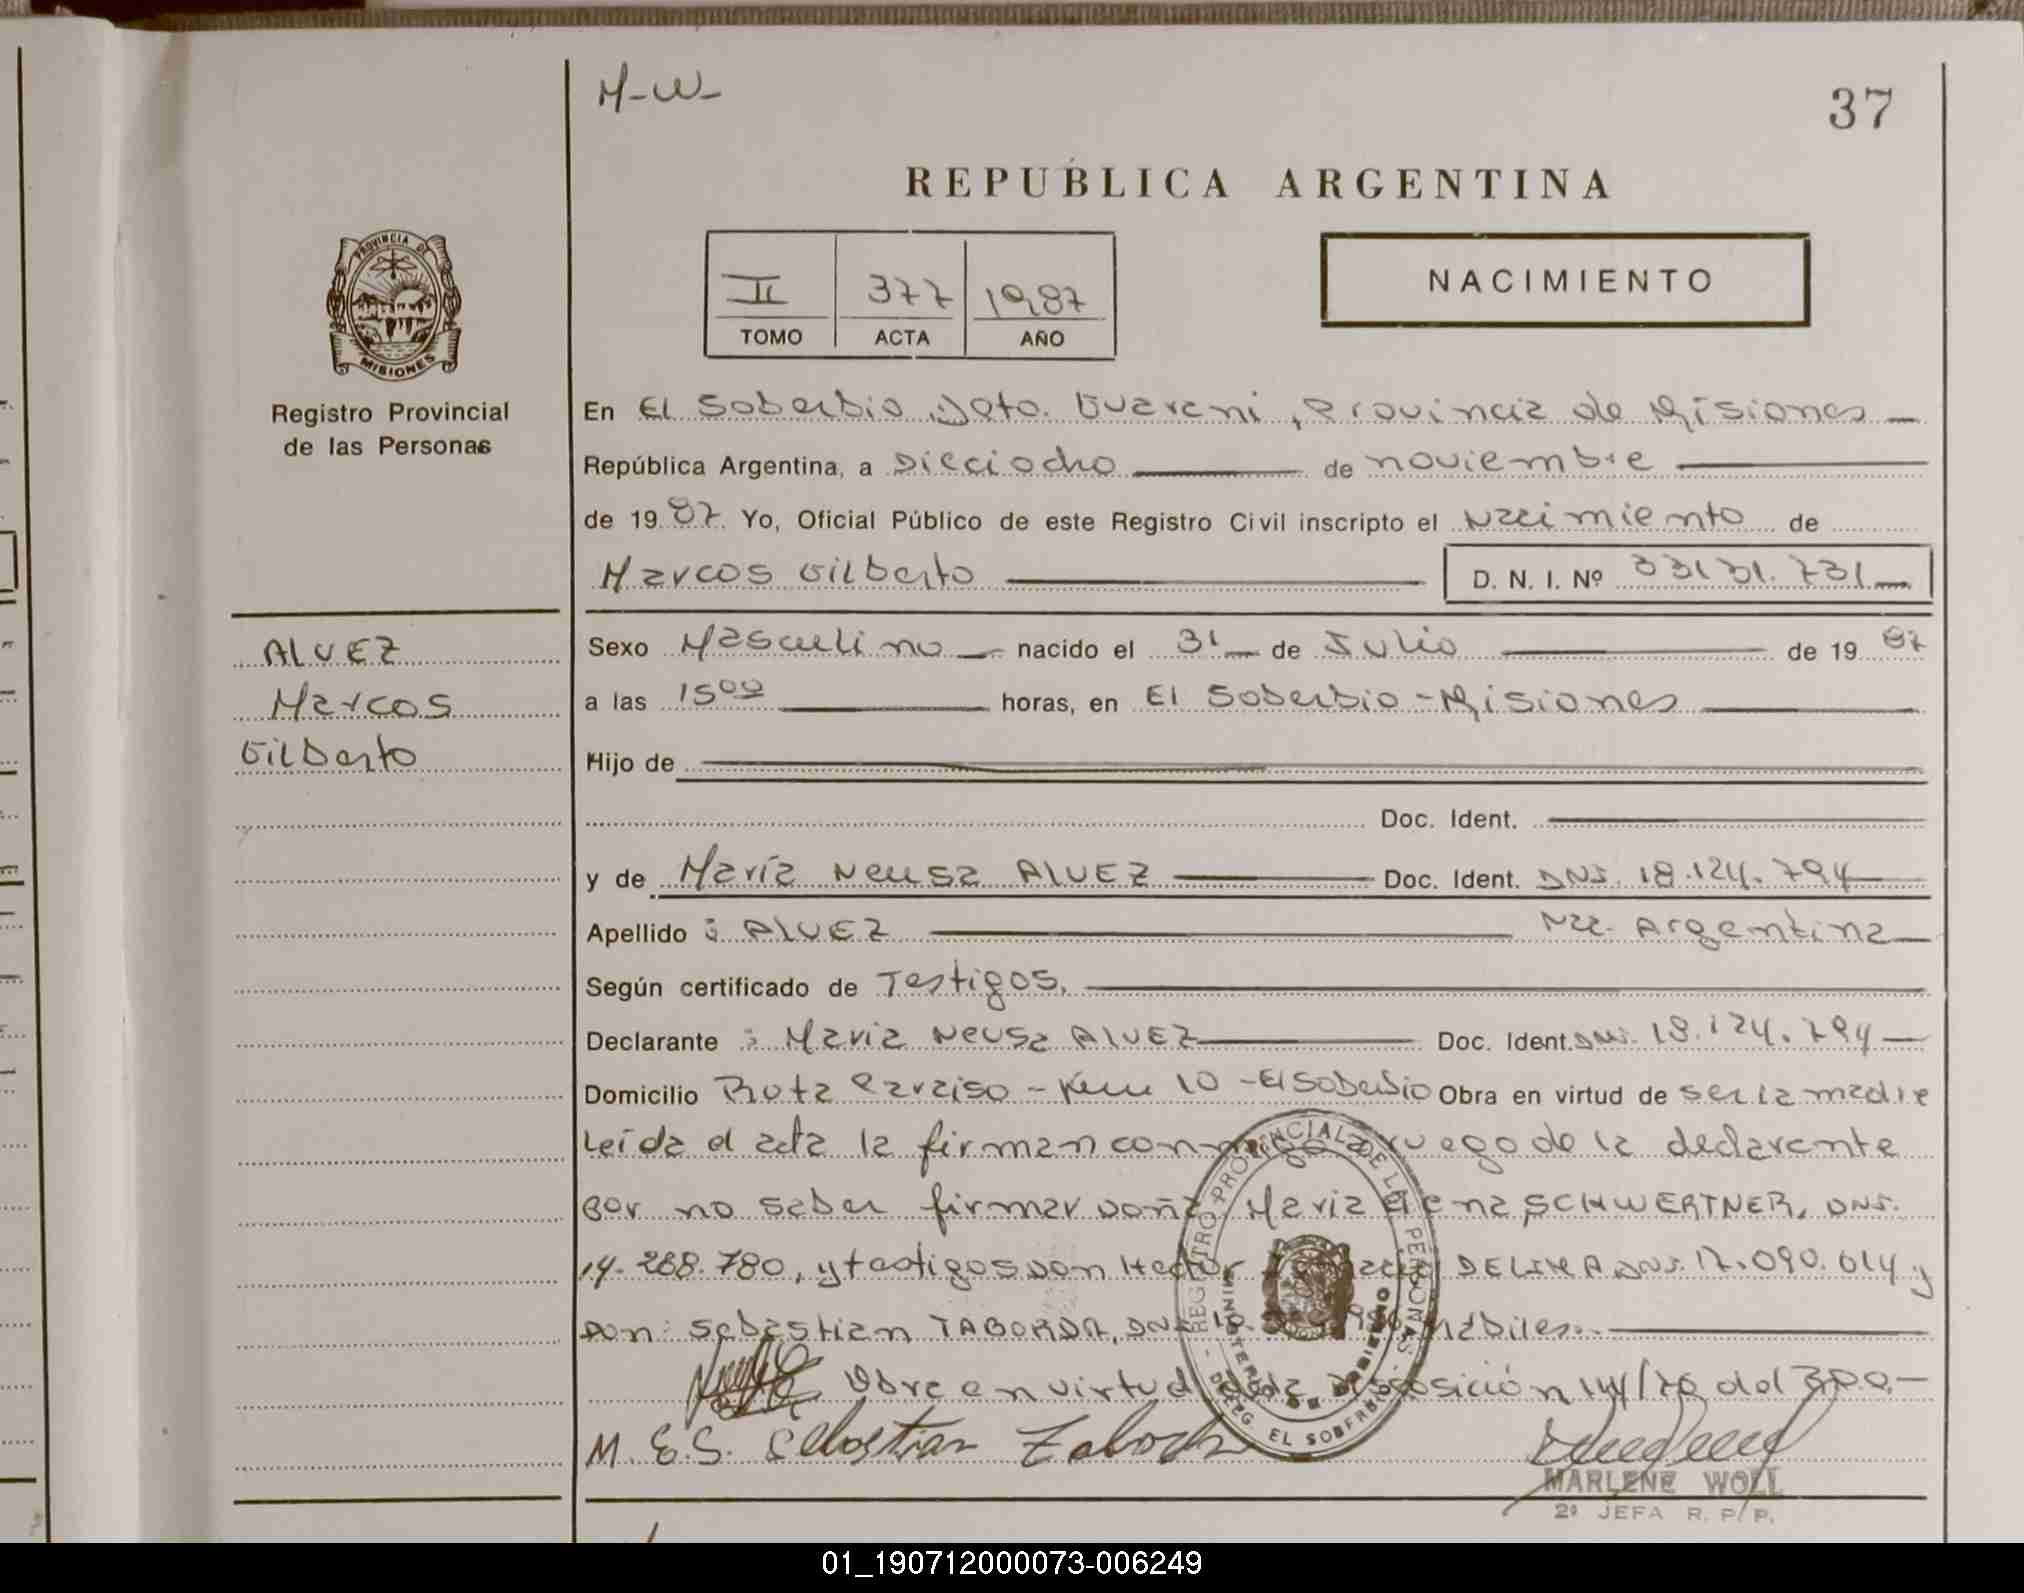 M-W-
37
REPUBLICA ARGENTINA
II 377 1987
TOMO ACTA AÑO
NACIMIENTO
PROVINCIA DE MISIONES
Registro Provincial
de las Personas
ALVEZ
Marcos
Gilberto
En El Soberbio, Dpto. Guarani, Provincia de Misiones
República Argentina, a Dieciocho de noviembre
de 1987. Yo, Oficial Público de este Registro Civil inscripto el Nacimiento de
Marcos Gilberto D. N. I. Nº
Sexo Masculino nacido el 31 de Julio de 1987
a las 15⁰⁰ horas, en El Soberbio - Misiones
Hijo de
Doc. Ident.
y de María Neusa ALVEZ Doc. Ident. DNI. 18.124.794
Apellido : ALVEZ Nac. Argentina
Según certificado de Testigos.
Declarante : Maria Neusa ALVEZ Doc. Ident. DNI. 18.124.794
Domicilio Ruta Paraiso - Km 10 - El Soberbio Obra en virtud de ser la madre
Leída el acta la firman conmigo a ruego de la declarante
por no saber firmar doña Maria Elena SCHWERTNER, DNI.
14.268.780, y testigos don Hector DELIMA DNI. 17.090.014 y
Don: Sebastian TABORDA, DNI. habiles.
Obra en virtud de la Disposición 144/78 del R.P.P.
M. E. S. Sebastian Taborda
REGISTRO PROVINCIAL DE LAS PERSONAS
MINISTERIO DE GOBIERNO
DELEG. EL SOBERBIO
MARLENE WOLL
2ª JEFA R. P. P.
01_190712000073-006249